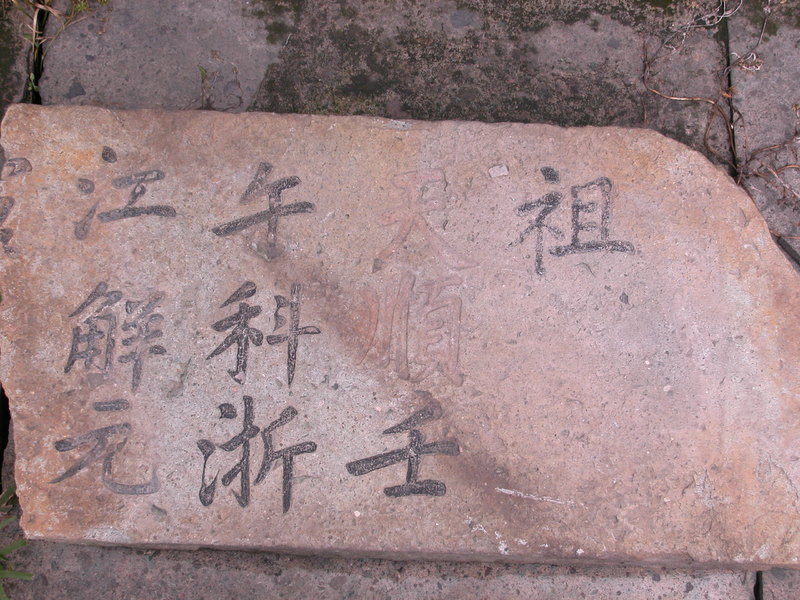 祖
天順壬
午科浙
江解元